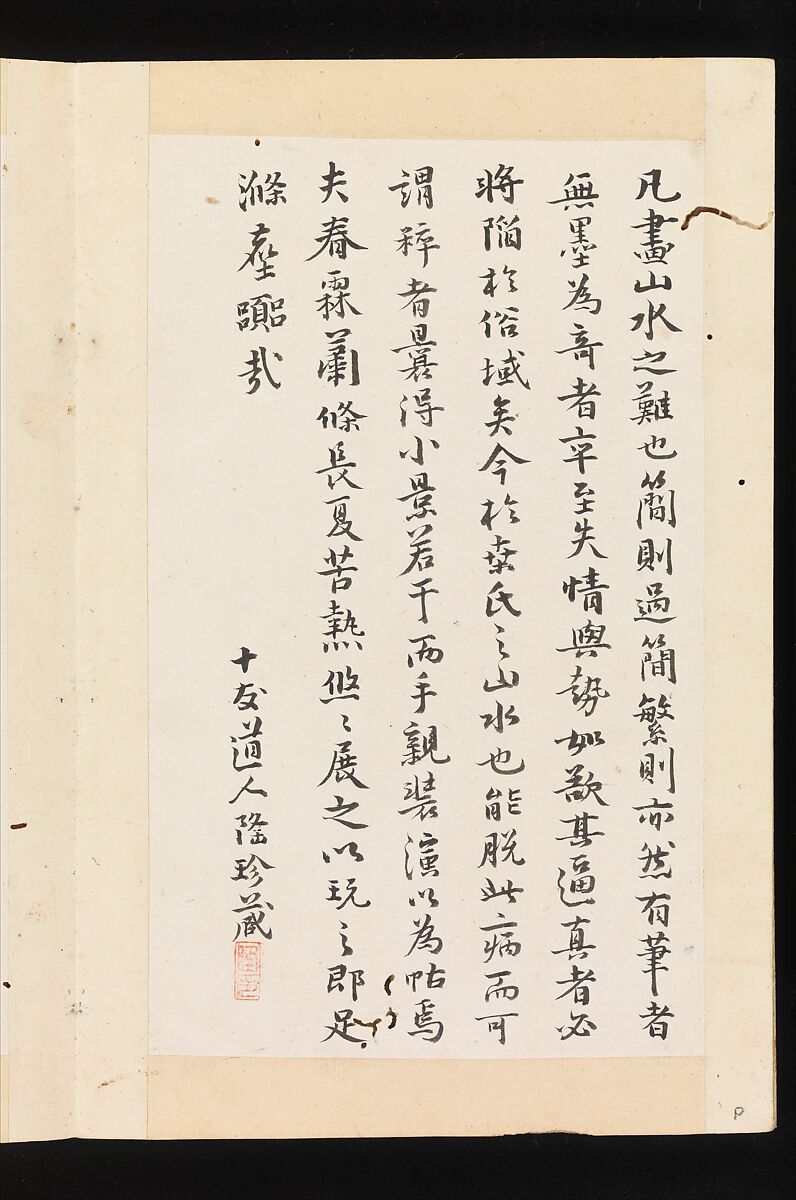 凡畫山水之難也簡則過簡繁則亦然有筆者
無墨為奇者卒至失情與勢如欲其逼真者必
將陷於俗域矣今於桒氏之山水也能脱此二病而可
謂粹者曩得小景若干而手親装潢以為帖焉
夫春霖蕭條長夏苦熱悠〻展之以玩之即足
滌塵嚣哉
十友道人隆珍蔵